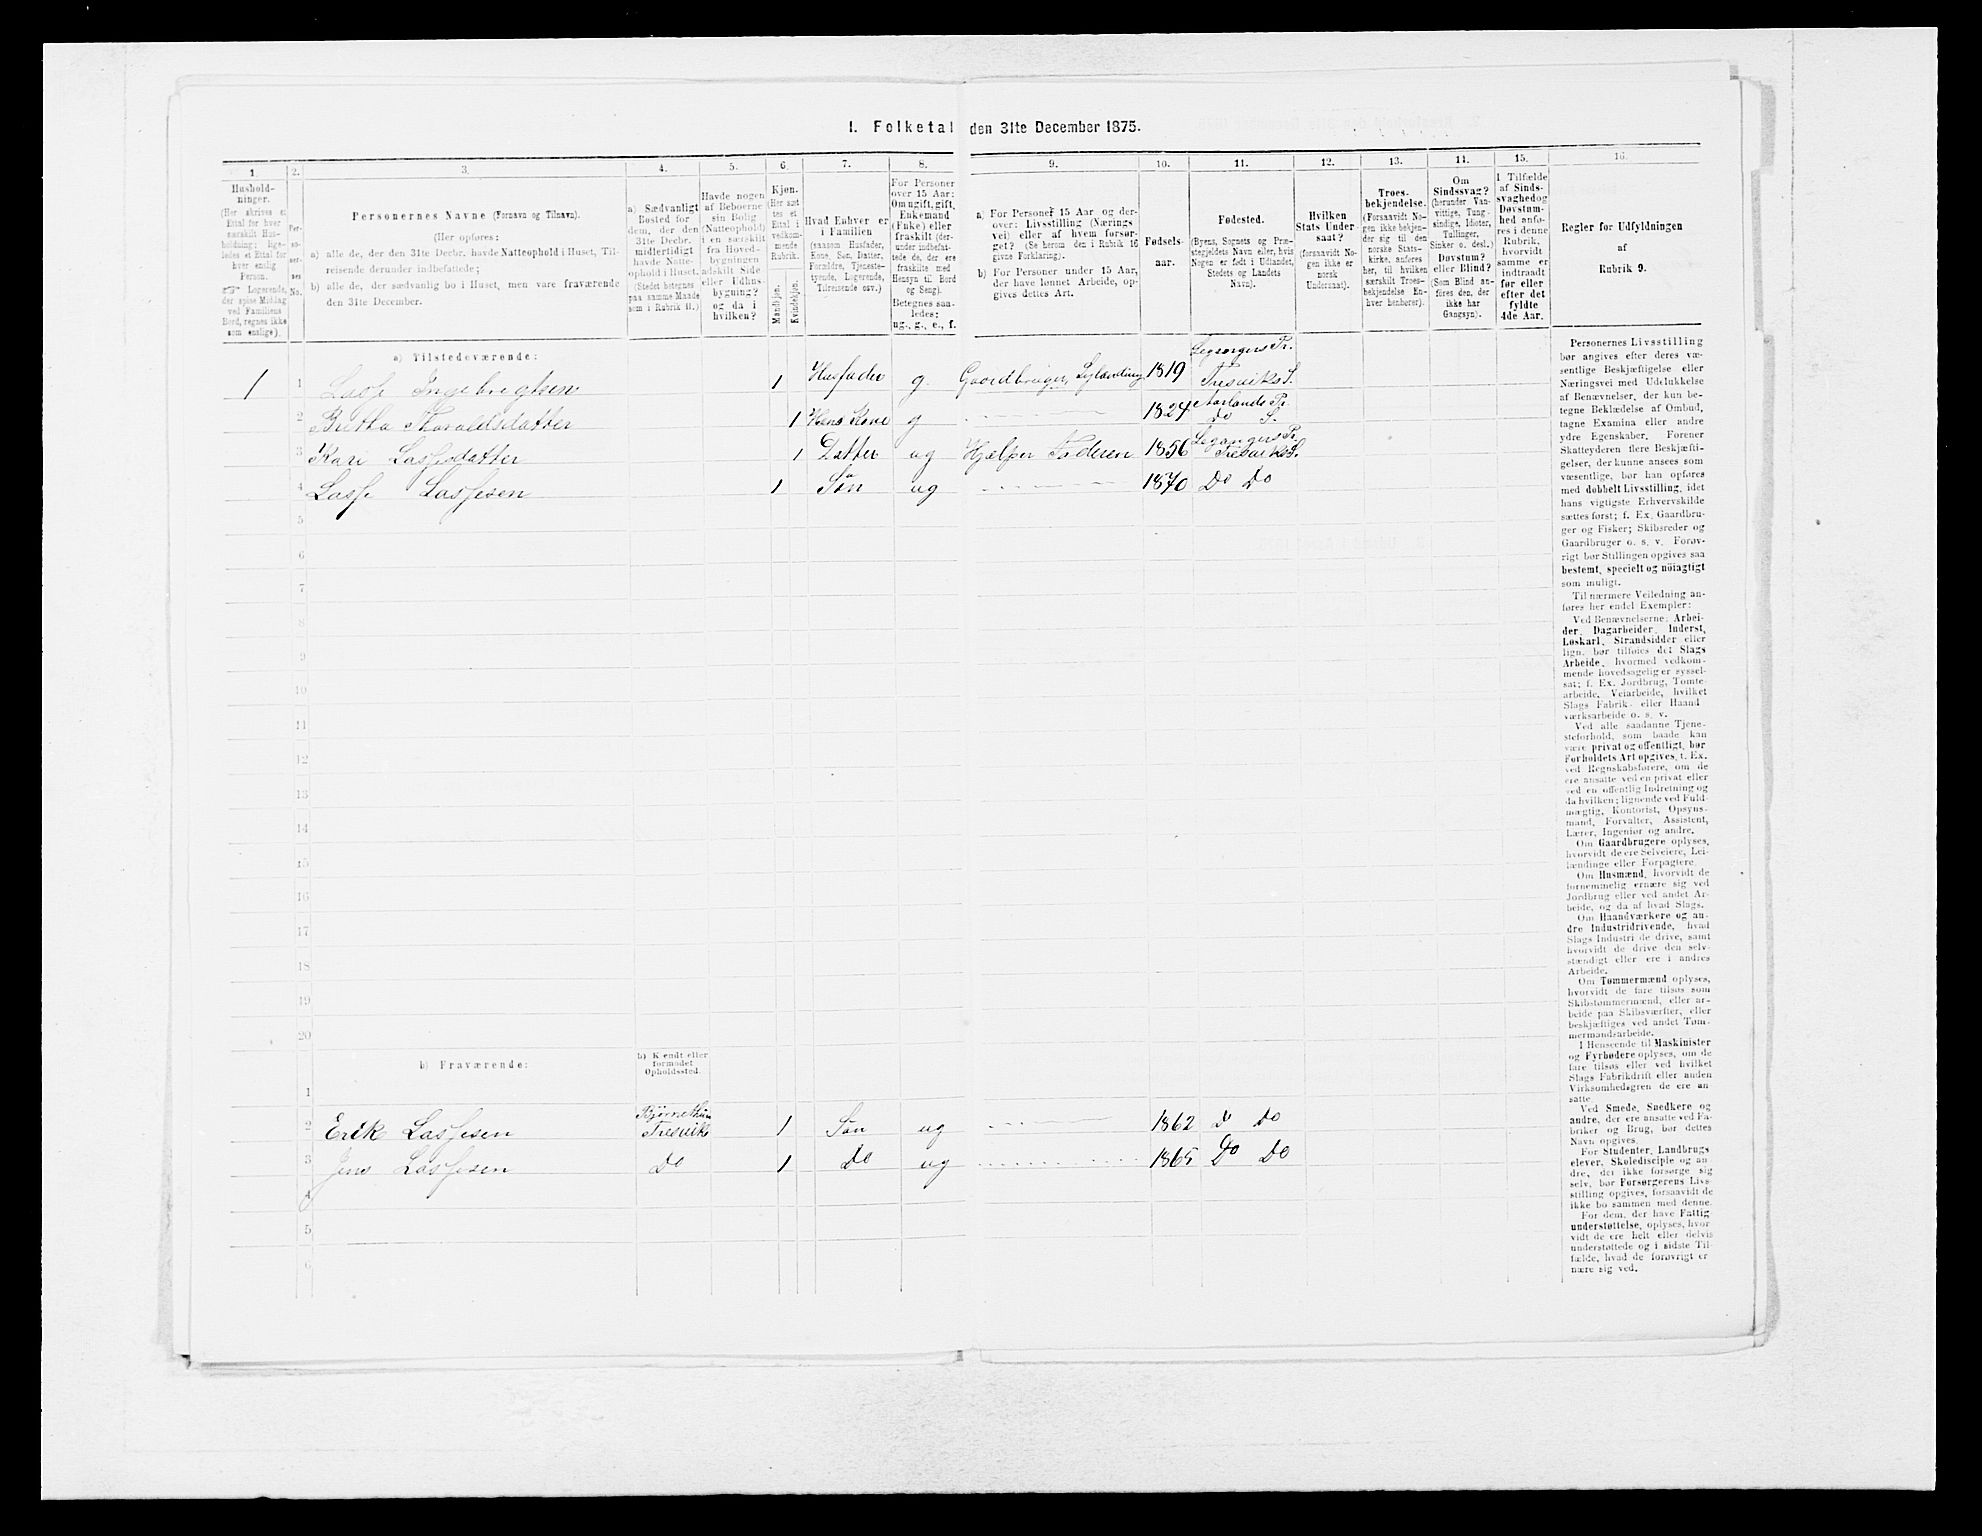 1. Folketal den 31te December 1875.
1. 2. 3. 4. 5. 6. 7. 8. 9. 10. 11. 12. 13. 14. 15. 16.
Hushold-
ninger.
(Her skrives et
Ettal for hver
særskilt Hus-
holdning; lige-
ledes et Ettal for
hver enslig
Person.
☞ Logerende,
der spise Middag
ved Familiens
Bord, regnes ikke
som enslige).
Per-
so-
ner-
nes
No.
Personernes Navne (Fornavn og Tilnavn).
(Her opføres:
a) alle de, der den 31te Decbr. havde Natteophold i Huset, Til-
reisende derunder indbefattede;
b) alle de, der sædvanlig bo i Huset, men vare fraværende
den 31te December.
a) Sædvanligt
Bosted for
dem, der den
31te Decbr.
midlertidigt
havde Natte-
ophold i Huset.
(Stedet betegnes
paa samme Maade
som i Rubrik 11.)
Havde nogen
af Beboerne
sin Bolig
(Natteophold)
i en særskilt
fra Hoved-
bygningen
adskilt Side-
eller Udhus-
bygning?
og da i
hvilken?
Kjøn.
(Her sæt
tes et
Ettal i
vedkom-
mende
Rubrik.
Mandkjøn.
Kvindekjøn.
Hvad Enhver er
i Familien
(saasom Husfader,
Kone, Søn, Datter,
Forældre, Tjeneste-
tyende, Logerende,
Tilreisende osv.)
For Personer
over 15 Aar:
Om ugift, gift,
Enkemand
(Enke) eller
fraskilt (der-
under indbefat-
tede de, der ere
fraskilte med
Hensyn til Bord
og Seng).
Betegnes saa-
ledes:
ug., g., e., f.
a) For Personer 15 Aar og der-
over: Livsstilling (Nærings
vei) eller af hvem forsør-
get? (Se herom den i Rubrik 16
givne Forklaring).
b) For Personer under 15 Aar,
der have lønnet Arbeide, op-
gives dettes Art.
Fødsels-
aar.
Fødested.
(Byens, Sognets og Præ-
stegjeldets Navn eller, hvis
Nogen er født i Udlandet,
Stedets og Landets
Navn).
Hvilken
Stats Under
saat?
(forsaavidt No-
gen ikke er
norsk
Undersaat).
Troes-
bekjendelse.
(Forsaavidt No-
gen ikke bekjen-
der sig til den
norske Stats-
kirke, anføres
her, til hvilken
særskilt Troes-
bekjendelse En-
hver henhører).
Om
Sindssvag?
(herunder Van-
vittige, Tung-
sindige, Idioter,
Tullinger,
Sinker o. desl.)
Døvstum?
eller Blind?
(Som Blind an-
føres den, der
ikke har
Gangsyn).
I Tilfælde
af Sinds-
svaghed og
Døvstum-
hed anfø-
res i denne
Rubrik,
hvorvidt
samme er
indtraadt
før eller
efter det
fyldte
4de Aar.
Regler for Udfyldningen
af
Rubrik 9.
a) Tilstedeværende:
1 1 Lasse Ingebregtsen 1 Husfader g. Gaardbruger, 1819
2 Bretha Thoraldsdatter 1 Hans Kone g 1824 Aurlands Pr. Do S.
3 Kari Lassesdatter 1 Datter ug Hjælper Faderen 1856 Legangers Pr.
4 Lasse Lassesen 1 Søn ug 1870 Do Do
5
6
7
8
9
10
11
12
13
14
15
16
17
18
19
20
b) Fraværende:
b) Kjendt eller
formodet
Opholdssted.
1
2 Erik Lassesen Fresvik 1 Søn ug 1862 Do Do
3 Jens Lassesen Do 1 Do ug 1865 Do Do
4
5
6
Personernes Livsstilling
bør angives efter deres væ-
sentlige Beskjæftigelse eller
Næringsvei med Udelukkelse
af Benævnelser, der kun be-
tegne Beklædelse af Ombud,
tagne Examina eller andre
ydre Egenskaber. Forener
Skatteyderen flere Beskjæfti-
gelser, der kunne ansees som
væsentlige, bør han opføres
med dobbelt Livsstilling, idet
hans vigtigste Erhvervskilde
sættes først; f. Ex. Gaardbru-
ger og Fisker; Skibsreder og
Gaardbruger o. s. v. Forøv-
rigt bør Stillingen opgives saa
bestemt, specielt og nöiagtigt
som muligt.
Til nærmere Veiledning an-
føres her endel Exempler:
Ved Benævnelserne: Arbei-
der, Dagarbeider, Inderst,
Løskarl, Strandsidder eller
lign. bør tilføies det Slags
Arbeide, hvormed vedkom-
mende hovedsagelig er syssel-
sat; f. Ex. Jordbrug, Tomte-
arbeide, Veiarbeide, hvilket
Slags Fabrik- eller Haand
værksarbeide o. s. v.
Ved alle saadanne Tjene-
steforhold, som baade kan
være privat og offentligt, bør
Forholdets Art opgives, f. Ex.
ved Regnskabsførere, om de
ere ansatte ved en privat eller
ved en offentlig Indretning og
da hvilken; lignende ved Fuld-
mægtig, Kontorist, Opsyns-
mand, Forvalter, Assistent,
Lærer, Ingeniør og andre.
Om Gaardbrugere oplyses,
hvorvidt de ere Selveiere, Lei-
lændinge eller Forpagtere.
Om Husmænd, hvorvidt de
fornemmelig ernære sig ved
Jordbrug eller ved andet Ar-
beide, og da af hvad Slags.
Om Haandværkere og an-
dre Industridrivende, hvad
Slags Industri de drive, samt
hvorvidt de drive den selv-
stændigt eller ere i andres
Arbeide.
Om Tømmermænd oplyses,
hvorvidt de fare tilsøs som
Skibstømmermænd, eller ar-
beide paa Skibsværfter, eller
beskjæftiges ved andet Tøm-
mermandsarbeide.
I Henseende til Maskinister
og Fyrbødere oplyses, om de
fare tilsøs eller ved hvilket
Slags Fabrikdrift eller anden
Virksomhedsgren de ere an-
satte.
Ved Smede, Snedkere og
andre, der ere ansatte ved Fa-
briker og Brug, bør dettes
Navn opgives.
For Studenter, Landbrugs
elever, Skoledisciple og an
dre, der ikke forsørge sig
selv, bør Forsørgerens Livs-
stilling opgives, forsaavidt de
ikke bo sammen med denne.
For dem, der have Fattig
understøttelse, oplyses, hvor
vidt de ere helt eller delvis
understøttede og i sidste Til-
fælde, hvad de forøvrigt er
nære sig ved.